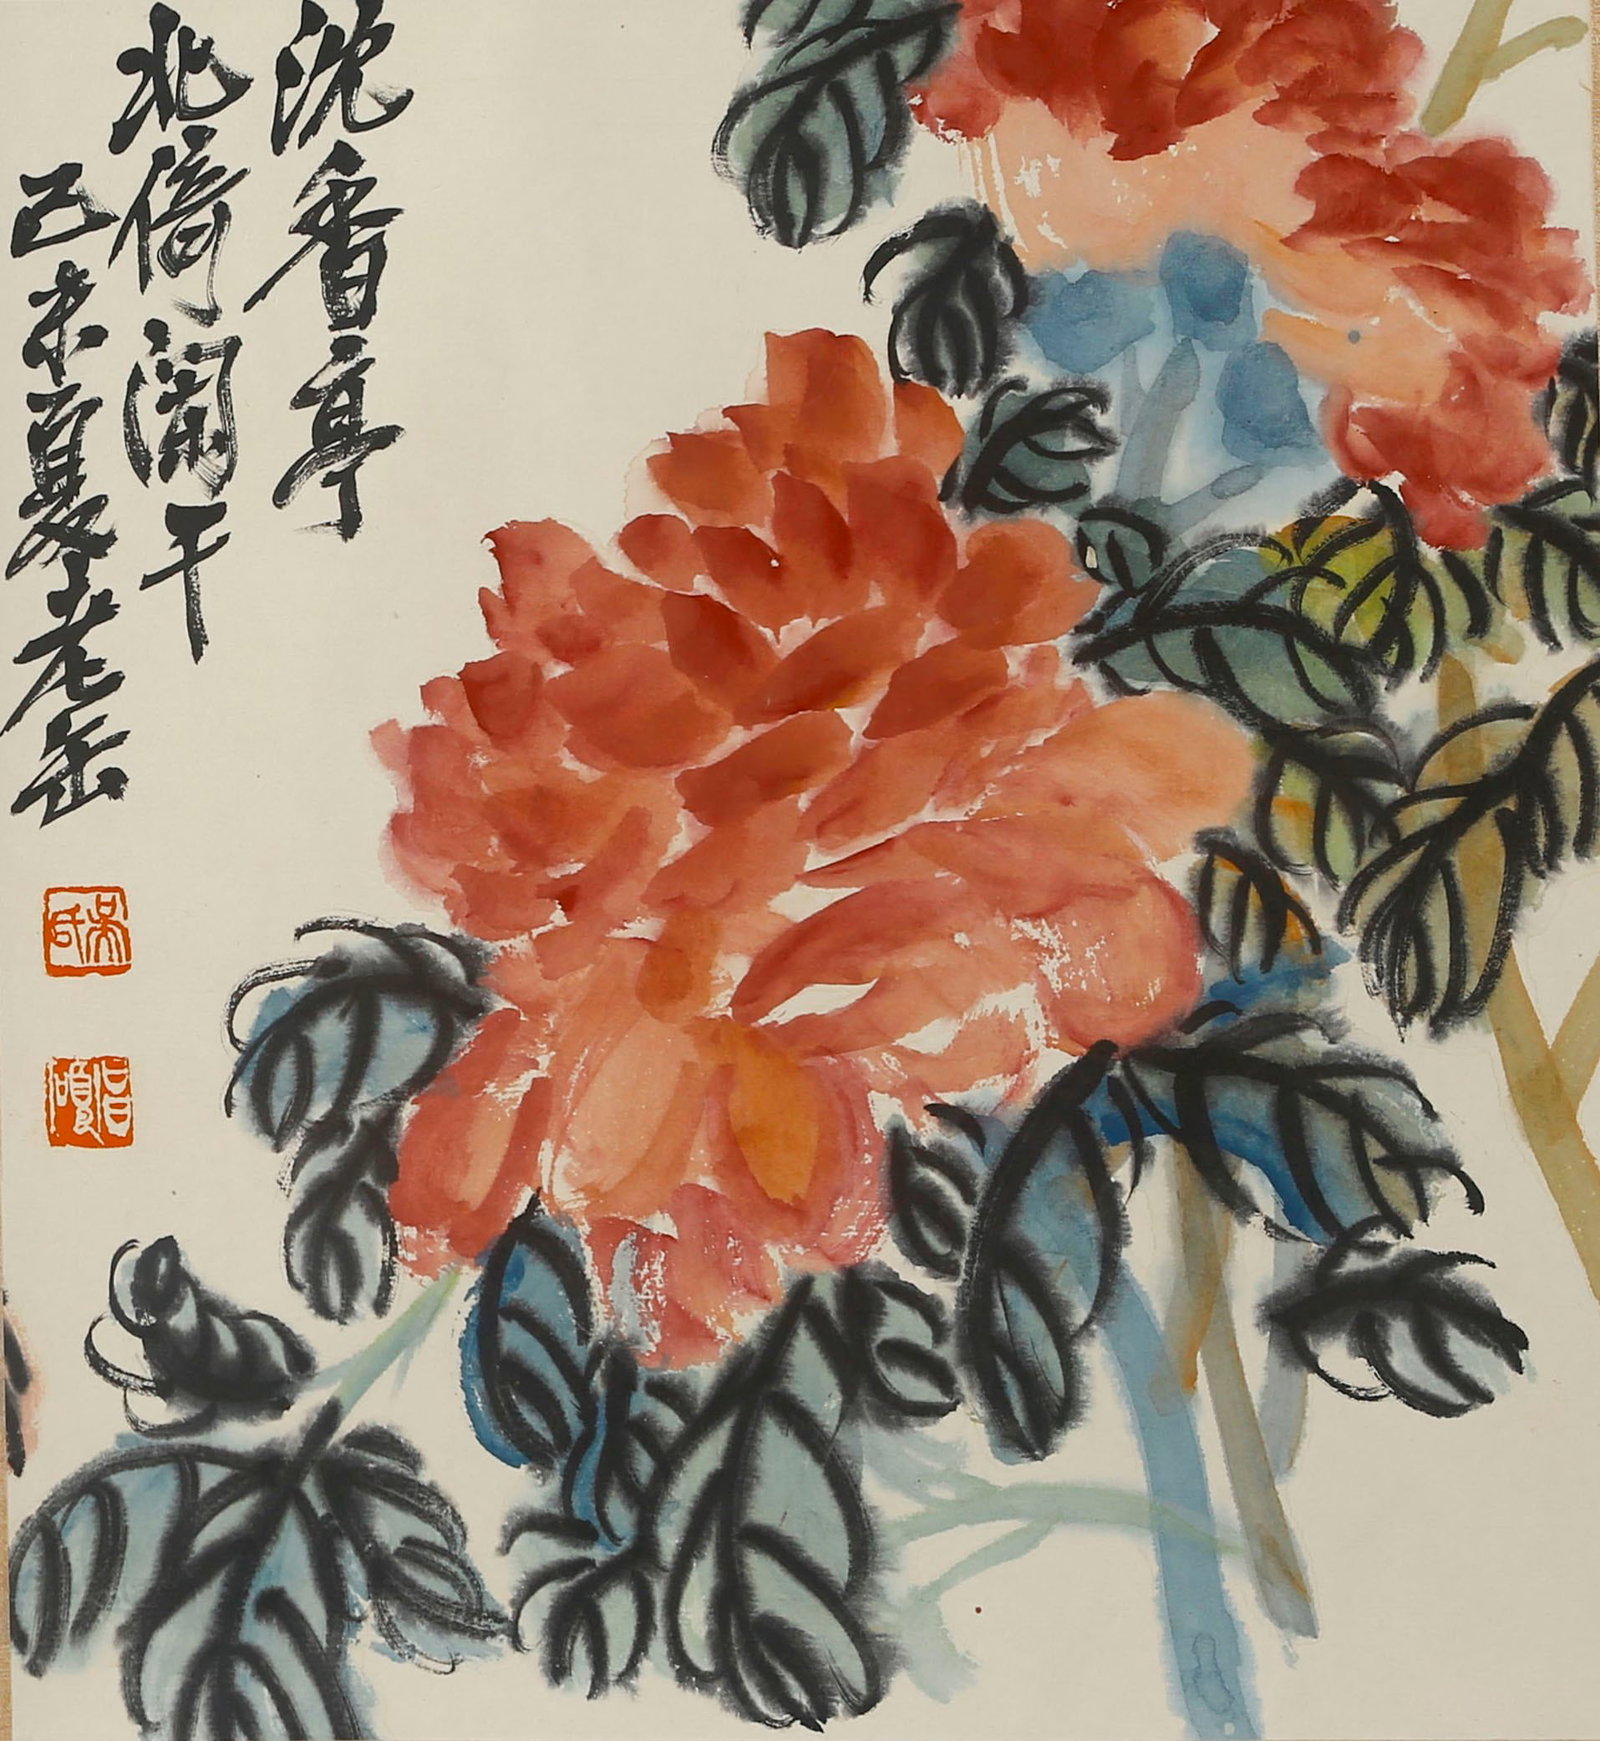 沈香亭
北倚闌干
己未夏老缶
吳氏
昌碩